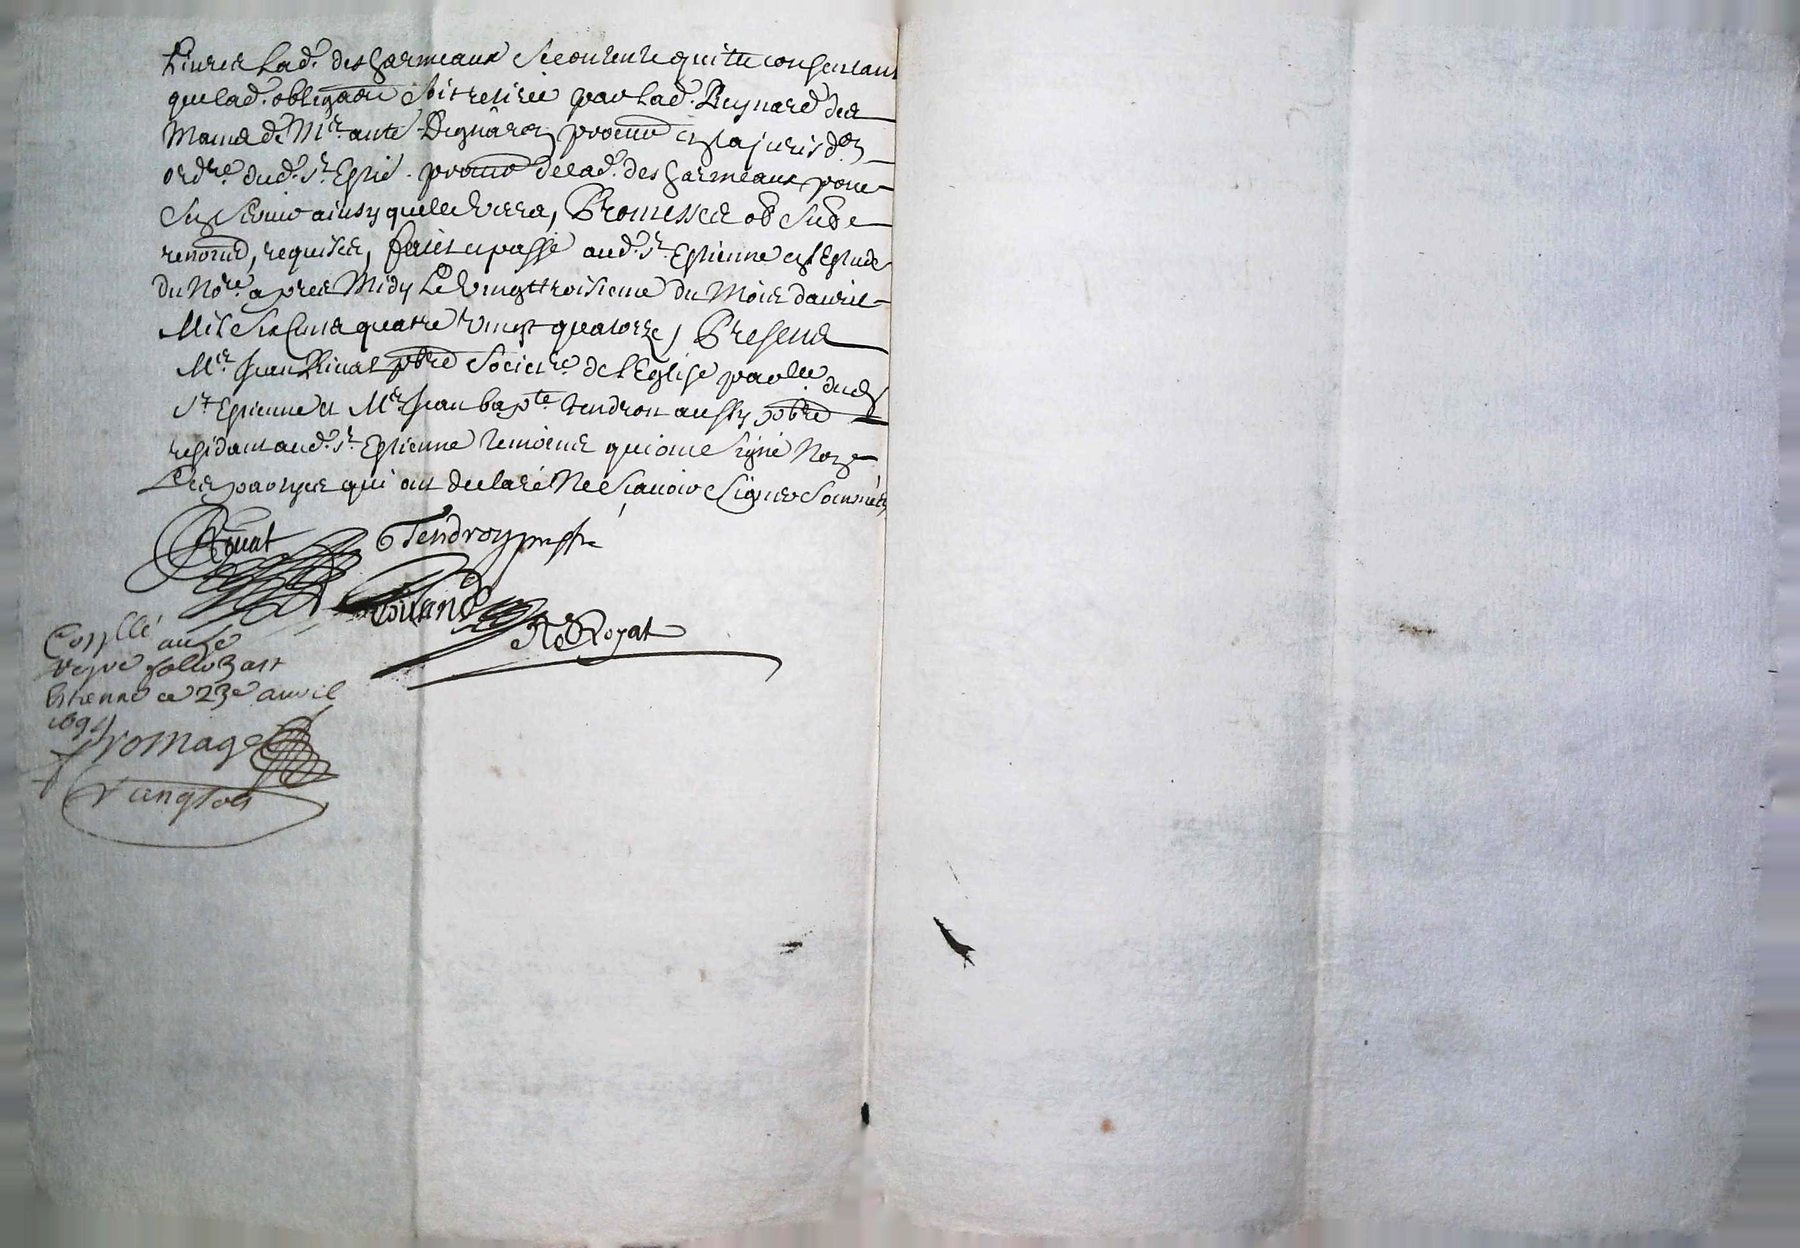 Livres Lad.e des garmeaux Se contente quitte consentant
que lad.e obligaon Soit retirée par Lad.e Reynard des
Mains de M.re ant.e Degnârer procur en la jurisdon
ordre dud. St Estie. procur de lad.e des garmeaux pour
S'en Servir ainsy quelle verra, Promesses ob Subt
renoncé, requises, fait et passé aud. St Estienne en l'Estude
Du Nore apres Midy Le vingttroisieme du Mois davril
Mil Six Cents quatre vingt quatorze, Presents
M.re Jean Rivat pbre Societre de l'Eglise parlle dud
St Estienne et M.re Jean bapte Tendron aussy pbre
residant aud. St Estienne temoins qui ont Signé Non
Les parties qui ont declaré Ne Scavoir Signer Sommés
Rivat Tendron prestre
NeRoyat
Conllé au 3e
Estienne ce 23e avril
1694
fromage
Langlois